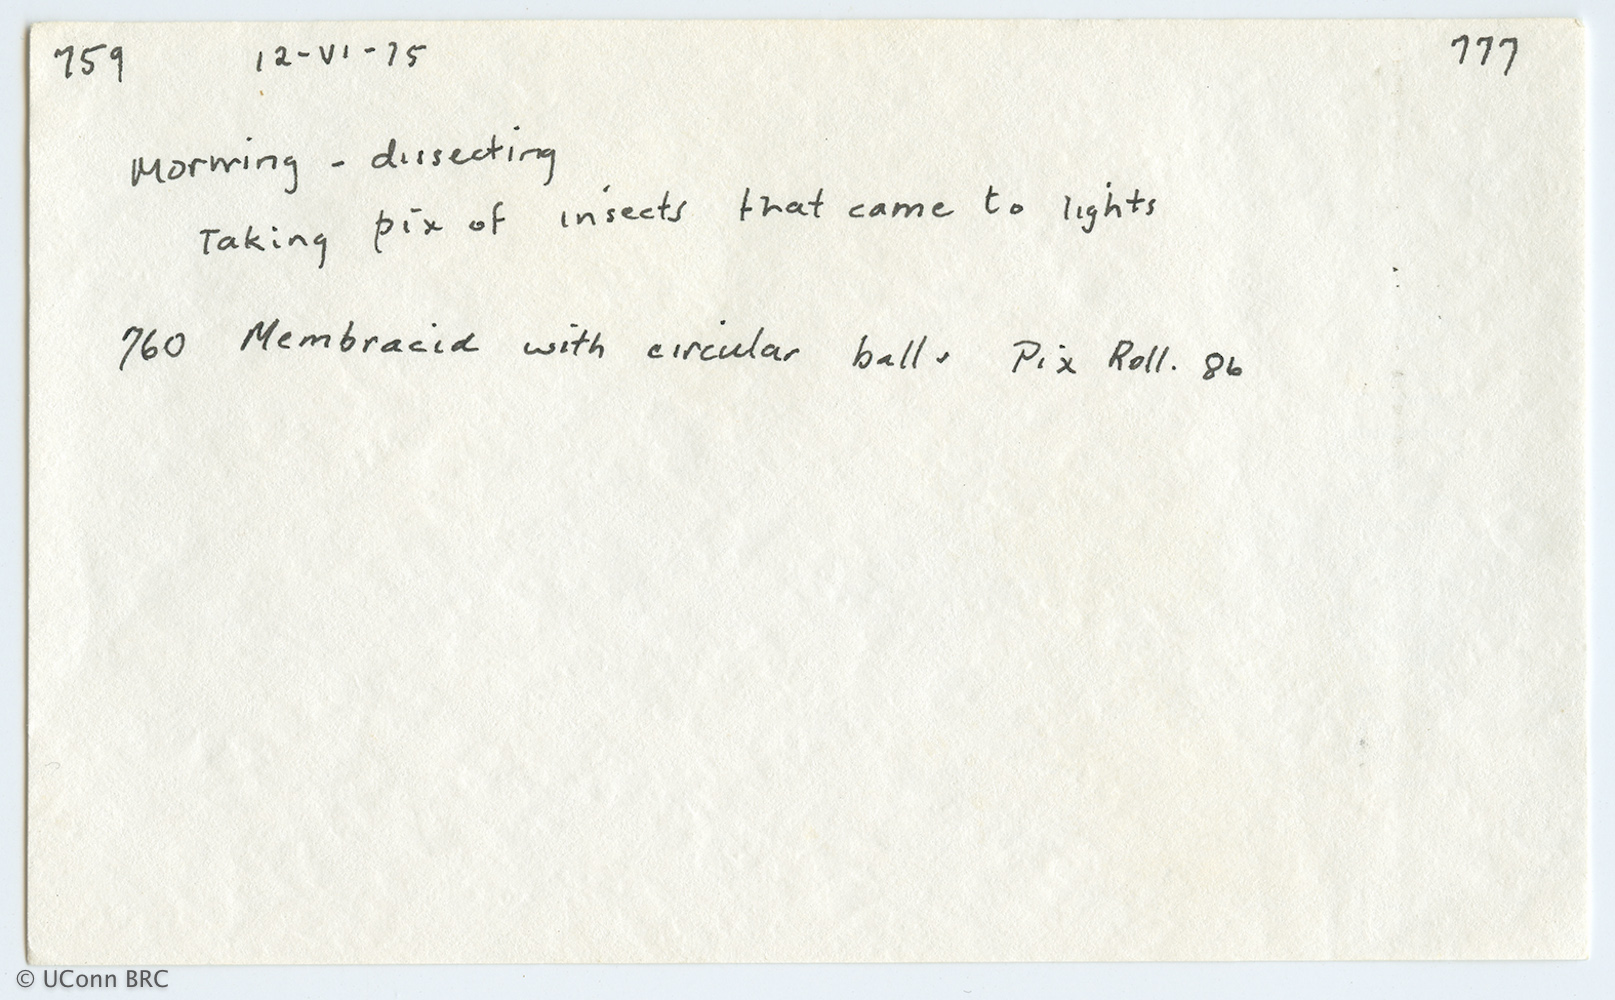 759 12-VI-75 777
Morning - dissecting
Taking pix of insects that came to lights
760 Membracid with circular balls. Pix Roll. 86
© UConn BRC